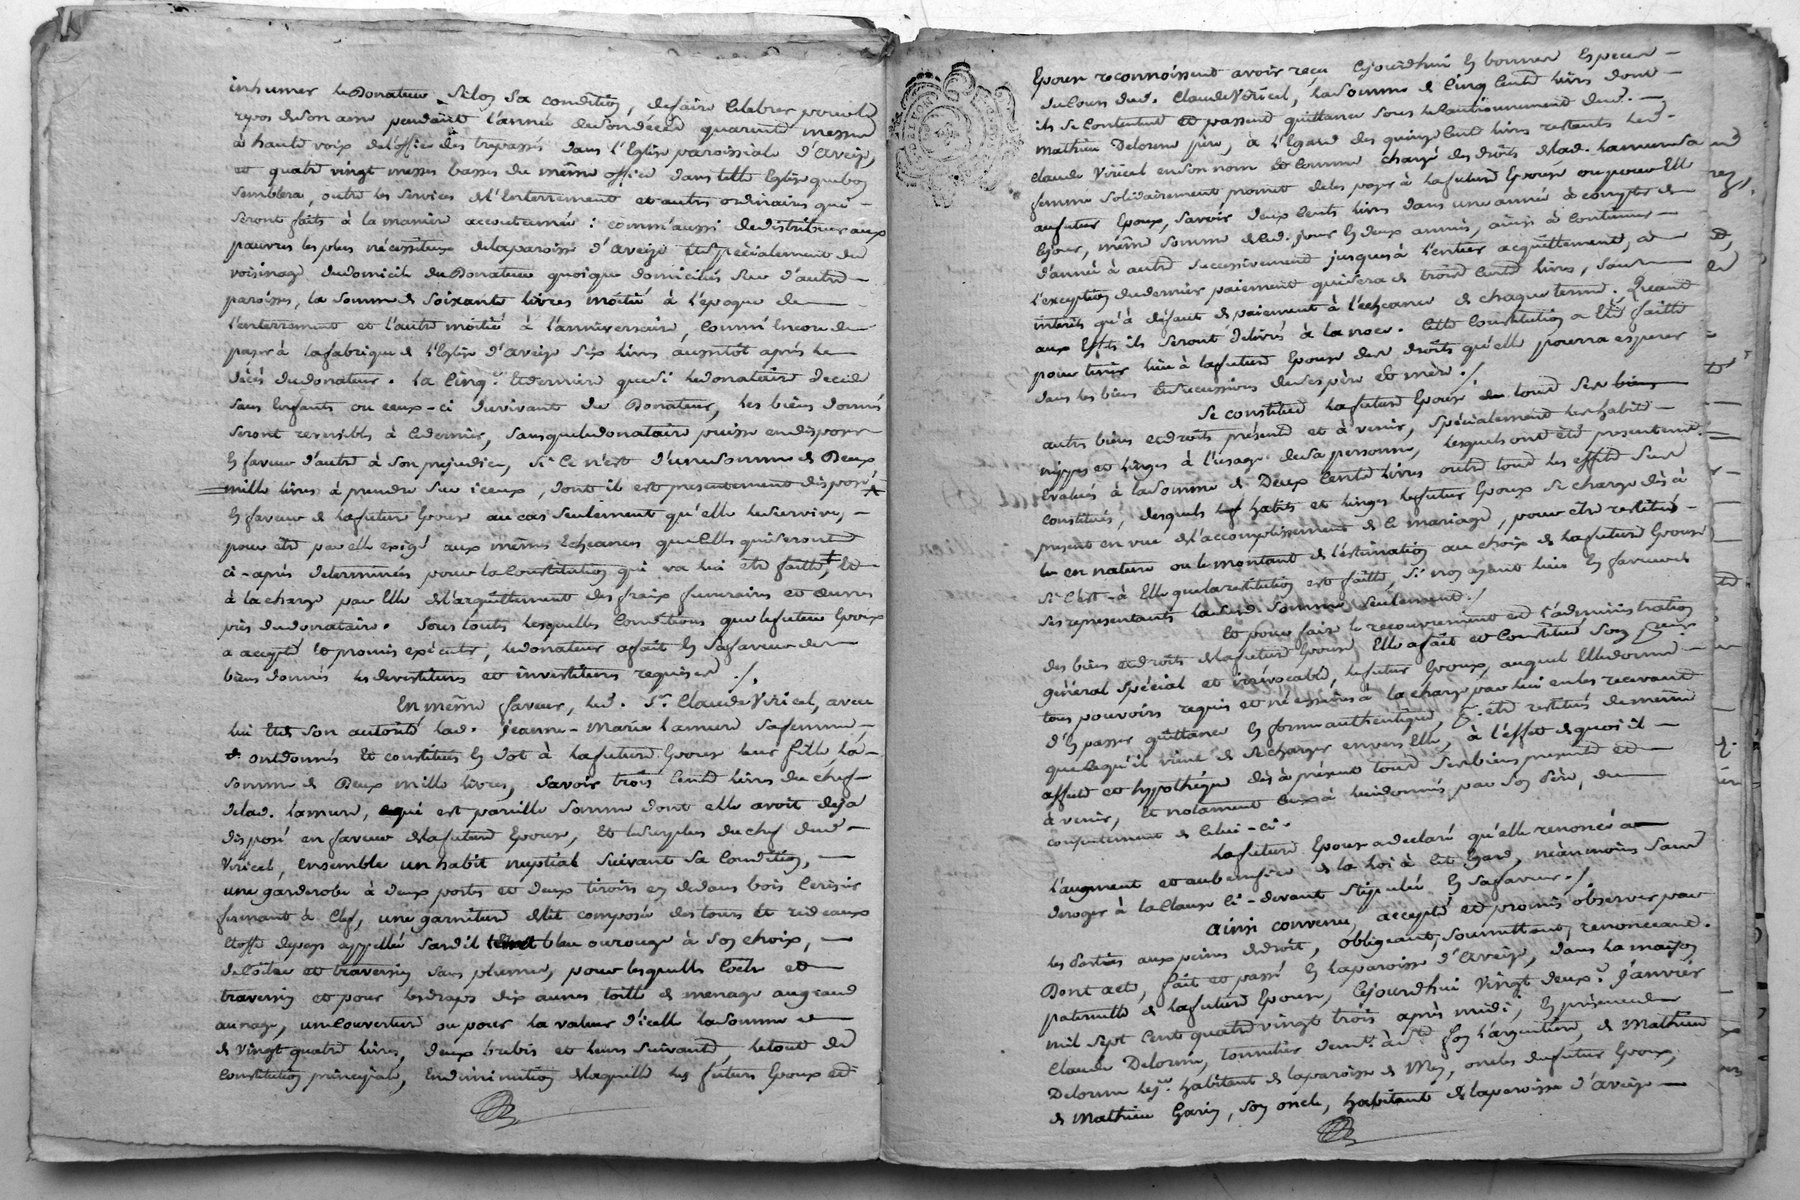 inhumer le Donateur Selon Sa condition, defaire Celebrer pour le
repos deson ame pendant l'année desondécéd quarente messes
à haute voix del'office des trepassés dans l'Eglise paroissiale d'Aveize,
et quatre vingt messes basses du même office dans telle Eglise quebon
Semblera, outre les Services del'Enterrement et autres ordinaires qui
Seront faits à la maniere accoutumée : comm'aussi dedistribuer aux
pauvres les plus nécessiteux delaparoisse d'aveize et Specialement du
voisinage dudomicile du Donateur quoique domiciliés Sur d'autres
paroisses, la Somme de Soixante livres moitié à l'epoque de
l'enterrement et l'autre moitié à l'anniversaire, Comm'Encore de
payer à lafabrique de l'Eglise d'aveize Six livres aussitôt après le
décès dudonateur. la Cinq.e et derniere quesi ledonataire decede
Sans Enfants ou ceux-ci duvivant du Donateur, les biens donnés
Seront reversibles à Cedernier, Sansqueledonataire puisse endisposer
En faveur d'autre à Son prejudice, Si Ce n'est d'unesomme de Deux
mille livres à prendre Sur iceux, dont il est presentement disposé
En faveur de lafuture Epouse au cas Seulement qu'elle lesurvive,
pour etre par elle exigé aux mêmes Echeances que Celles quiseront
ci-après determinées pour la Constitution qui va lui etre faitte, et
à la charge par Elle del'acquittement des fraix funeraires et œuvres
pies dudonataire. Sous toutes lesquelles Conditions que lefutur Epoux
a accepté Et promis exécuter, ledonateur afait En Safaveur des
biens donnés les devestitures et investitures requises ./.
En même faveur, led. S.r Claude Viricel, avec
lui Et de Son autorité lad. Jeanne-Marie Lamure Safemme
ont donnés Et constitués En dot à lafuture Epouse leur fille la
Somme de Deux mille livres, Savoir trois Cents livres du chef
delad. Lamure, qui est pareille Somme dont elle avoit deja
disposé en faveur delafuture Epouse, Et lesurplus du chef dud.
Viricel, ensemble un habit nuptial Suivant Sa Condition,
une garderobe à deux portes et deux tiroirs en dedans bois Cerisier
fermant à Clef, une garniture delit composée des tours Et rideaux
Etoffe depays appellée Sardil bleu ou rouge à Son choix,
de Coitre et traversin Sans plume, pour lesquelles Coitre et
traversin et pour lesdraps dix aunes toille de menage augrand
aunage, une Couverture ou pour la valeur d'icelle la Somme
de vingt quatre livres, deux brebis et leurs Suivants, letout de
Constitution principale, Endiminution delaquelle les futurs Epoux et
Epouse reconnoissent avoir reçu Cejourdhui En bonnes Especes
deCours dud. Claude Viricel, lasomme de Cinq Cents livres dont
ils Se Contentent et passent quittance Sous le Cautionnement dud.
Mathieu Delorme père, à l'Egard des quinze Cents livres restants led.
Claude Viricel en Son nom et Comme chargé des droits delad. Lamure Sa
femme Solidairement promet de les payer à lafuture Epouse ou pour Elle
aufutur Epoux, Savoir deux Cents livres dans une année à compter de
Cejour, même Somme delad. jour En deux années, ainsi à Continuer
d'année à autre Successivement jusques à l'entier acquittement, à
l'exception dudernier paiement quisera de trois Cents livres, Sans
interets qu'à defaut de paiement à l'echeance de chaque terme. Quant
aux Effets ils Seront délivrés à la noce. Cette Constitution a Eté faitte
pour tenir lieu à lafuture Epouse des droits qu'elle pourra esperer
dans les biens Et successions deses père Et mère ./.
Se constitue lafuture Epouse tous Ses biens
autres biens etdroits présents et à venir, Spécialement les habits
nippes et linges à l'usage desa personne, lesquels ont été presentement
Evalués à la Somme de Deux Cents livres outre tous les effets Sus
Constitués, desquels habits et linges lefutur Epoux Se charge dès à
present en vue del'accomplissement de Ce mariage, pour etre restitués
en nature ou le montant de l'estimation au choix de lafuture Epouse
Si C'est à Elle que larestitution est faitte, Si non ayant lieu En faveur de
Ses representants ladite Somme Seulement ./.
Et pour faire le recouvrement et l'administration
des biens etdroits delafuture Epouse Elle afait et Constitué Son Proc.r
général Spécial et irrévocable, lefutur Epoux, auquel Elle donne
tous pouvoirs requis et nécessaires à la charge par lui en les recevant
d'En passer quittance En forme authentique, etre restitués de même
queCequ'il vient de Se charger envers Elle, à l'effet dequoi il
affecte et hypothéque dès à présent tous Ses biens presents et
à venir, Et notament ceux à lui donnés par Son Père, du
consentement de Celui-ci.
Lafuture Epouse adeclaré qu'elle renonce à
l'augment et au benefice de la Loi à Cet Egard, néanmoins Sans
deroger à la Clause Ci-devant Stipulée En Safaveur ./.
Ainsi convenu, accepté et promis observer par
les Parties aux peines dedroit, obligeant, Soumettant, renonceant.
Dont acte, fait et passé En laparoisse d'Aveize, dans la maison
paternelle de lafuture Epouse, Cejourdhui Vingt deux.e Janvier
mil Sept Cents quatre vingt trois après midi, En présence de
Claude Delorme, tonnelier dem.t à S.t foy l'argentiere, de Mathieu
Delorme habitant de laparoisse de Mey, oncles dufutur Epoux,
de Mathieu Garin, Son oncle, habitant de laparoisse d'aveize